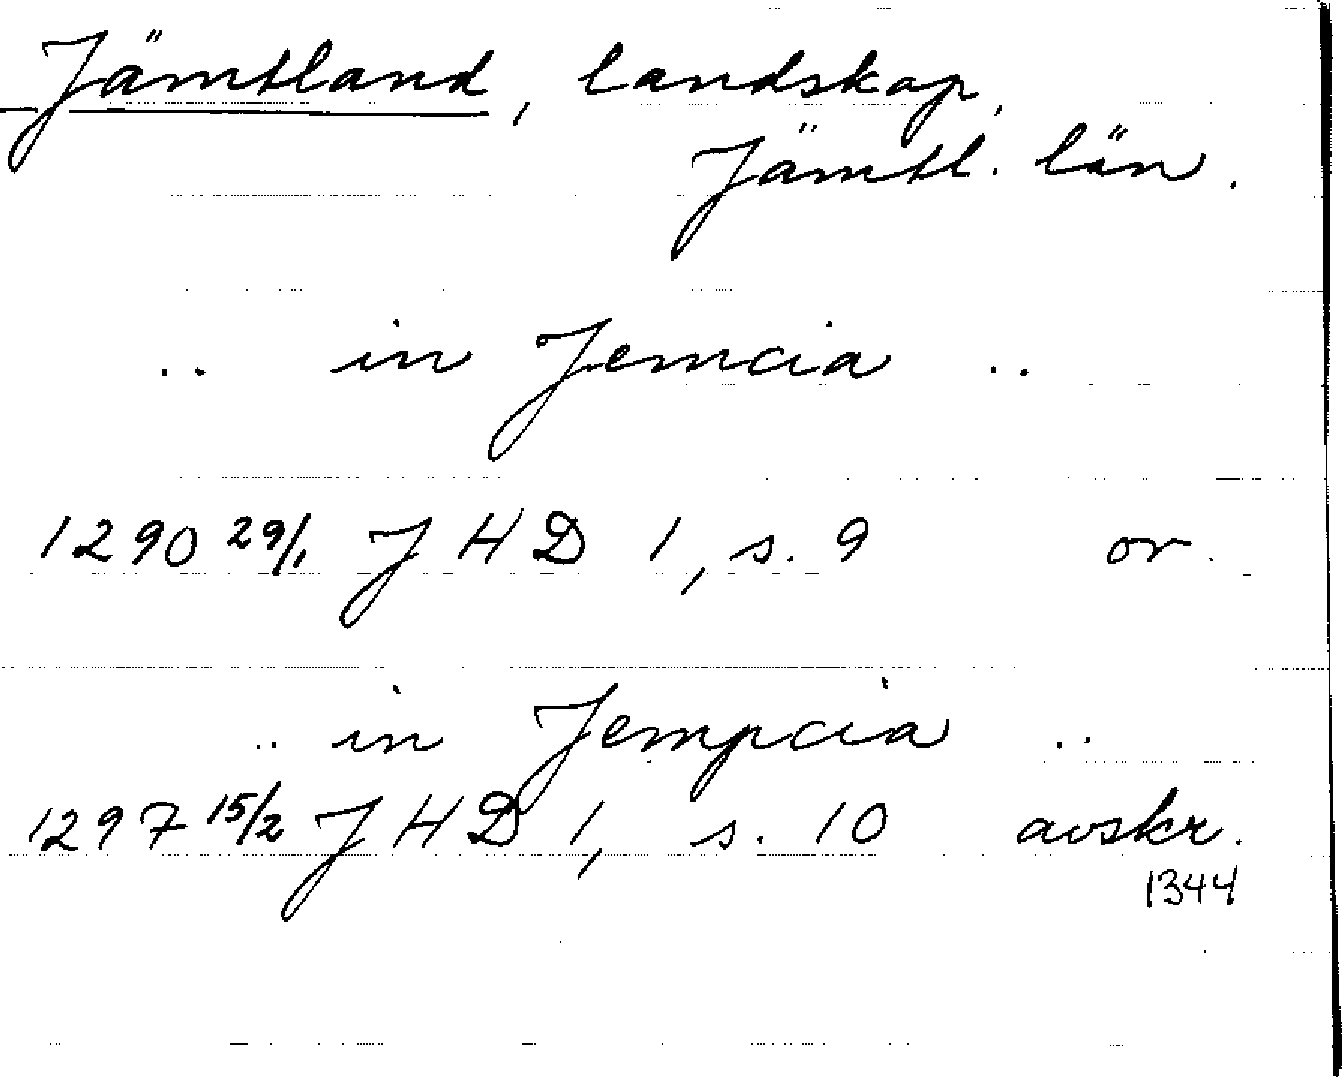 Jämtland, landskap,
Jämtl. län.
.. in Jemcia ..
1290 29/1 J H D 1, s. 9 or.
.. in Jempcia ..
1297 15/2 J H D 1, s. 10 avskr.
1344